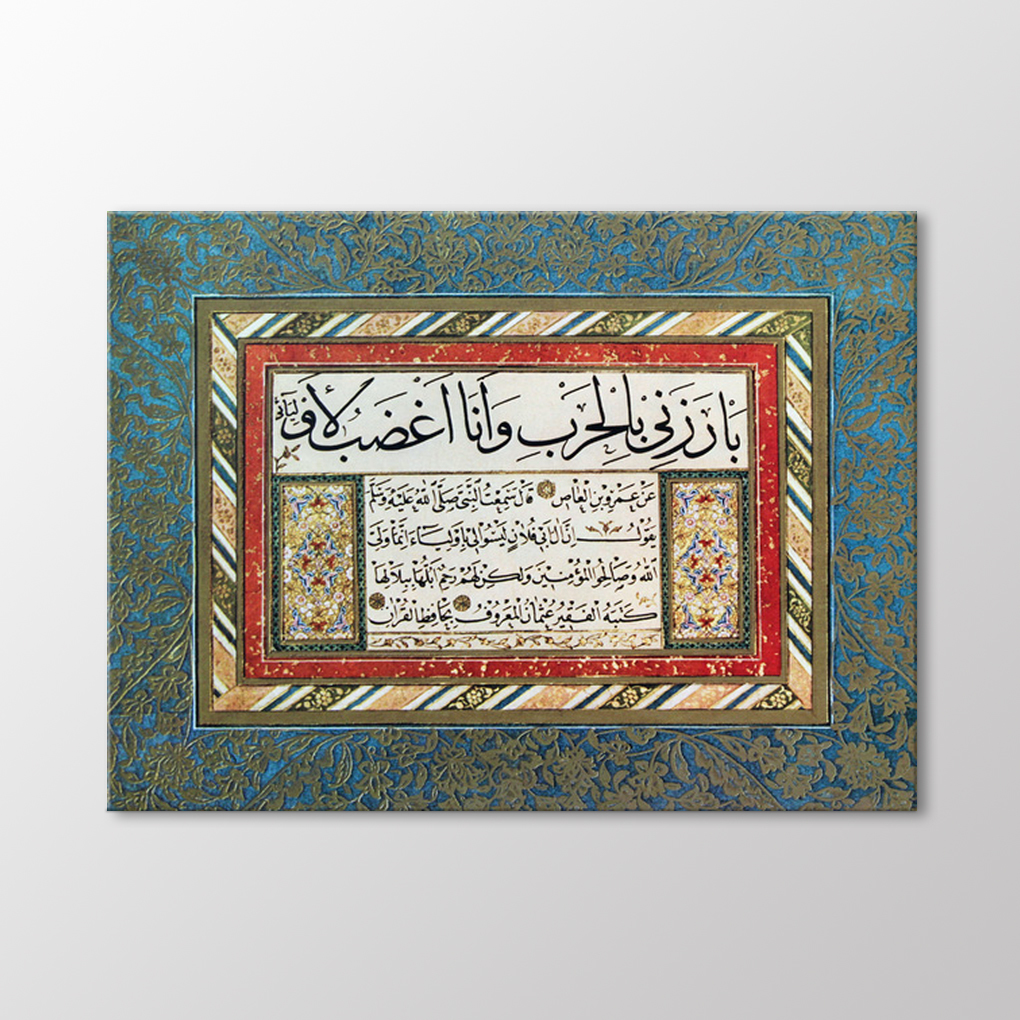 بَارَزَنِي بِالْحَرْبِ وَأَنَا أَغْضَبُ لِأَوْلِيَائِي
عَنْ عَمْرِو بْنِ الْعَاصِ قَالَ سَمِعْتُ النَّبِيَّ صَلَّى اللهُ عَلَيْهِ وَسَلَّمَ
يَقُولُ إِنَّ آلَ أَبِي فُلَانٍ لَيْسُوا لِي بِأَوْلِيَاءَ إِنَّمَا وَلِيَّ
اللهُ وَصَالِحُو الْمُؤْمِنِينَ وَلَكِنْ لَهُمْ رَحِمٌ أَبُلُّهَا بِبِلَالِهَا
كَتَبَهُ الْفَقِيرُ عُثْمَانُ الْمَعْرُوفُ بِحَافِظِ الْقُرْآنِ